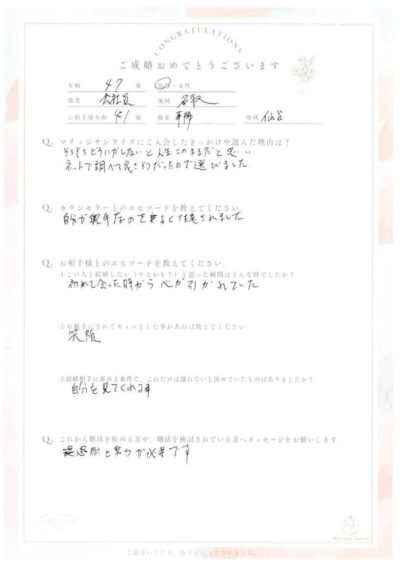 CONGRATULATIONS
ご成婚おめでとうございます
年齢 47 歳 男性・女性
職業 会社員 地域 名取
お相手様年齢 41 歳 職業 事務 地域 仙台
Q. マリッジサンライズにご入会したきっかけや選んだ理由は？
そろそろどうにかしないと人生このままだと思い
ネットで調べて良さそうだったので選びました
Q. カウンセラーとのエピソードを教えてください。
自分が親身なの
されました
Q. お相手様とのエピソードを教えてください。
①この人と結婚したい（するかも？）と思った瞬間はどんな時でしたか？
初めて会った時から心が引かれていた
②お相手にされてキュンとした事があれば教えてください
笑顔
③結婚相手に求める条件で、これだけは譲れないと決めていたものはありましたか？
自分を見てくれる
Q. これから婚活を始める方や、婚活を検討されている方へメッセージをお願いします。
と努力が必要です
Marriage Sunrise
ご協力いただき、ありがとうございました。